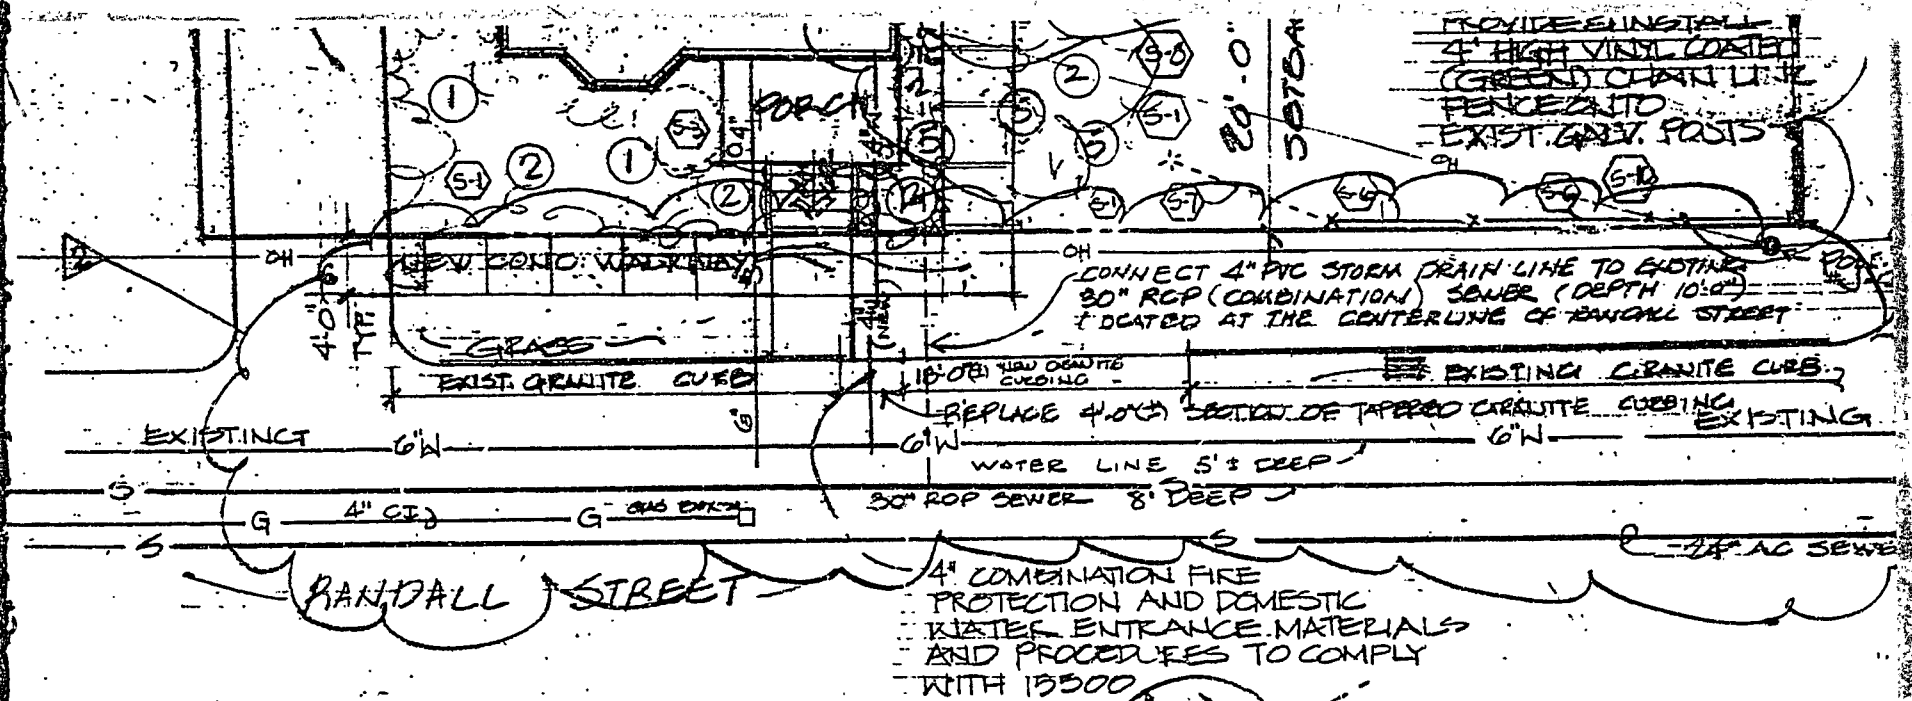 PROVIDE & INSTALL
4' HIGH VINYL COATED
(GREEN) CHAIN LINK
FENCE ONTO
EXIST. GALV. POSTS
20'-0"
PORCH
1
2
1
2
2
5
5
5
S-8
S-1
S-3
S-1
S-1
S-7
S-6
S-6
S-10
OH
OH
OH
2
NEW CONC WALKWAY
4'-0"
TYP.
CONNECT 4" PVC STORM DRAIN LINE TO EXISTING
30" RCP (COMBINATION) SEWER (DEPTH 10'-0")
LOCATED AT THE CENTERLINE OF RANDALL STREET
GRASS
4"
(NEW)
EXIST. GRANITE CURB
18'-0"(±) NEW GRANITE
CURBING
EXISTING GRANITE CURB
REPLACE 4'-0"(±) SECTION OF TAPERED GRANITE CURBING
EXISTING
EXISTING
6"W
6"W
6"W
WATER LINE 5'± DEEP
S
S
30" RCP SEWER 8' DEEP
G
4" CI
G
GAS
S
S
24" AC SEWE
RANDALL STREET
4" COMBINATION FIRE
PROTECTION AND DOMESTIC
WATER ENTRANCE. MATERIALS
AND PROCEDURES TO COMPLY
WITH 15500